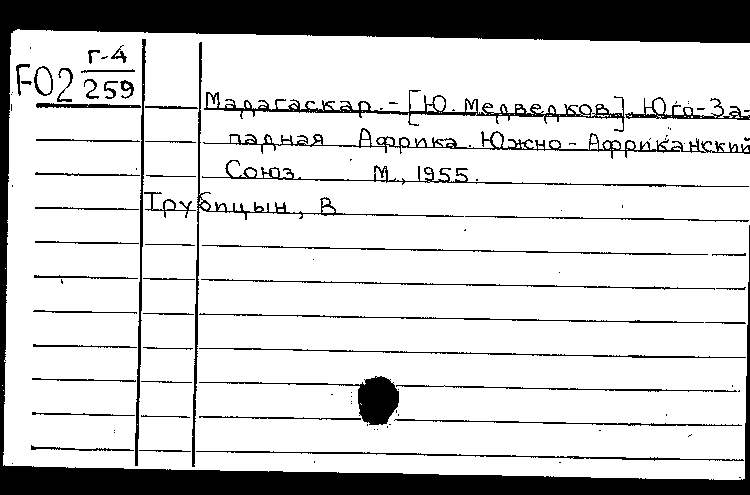 F02 г-4
259
Мадагаскар. - [Ю. Медведков]. Юго-За-
падная Африка. Южно-Африканский
Союз. М., 1955.
Трубицын, В